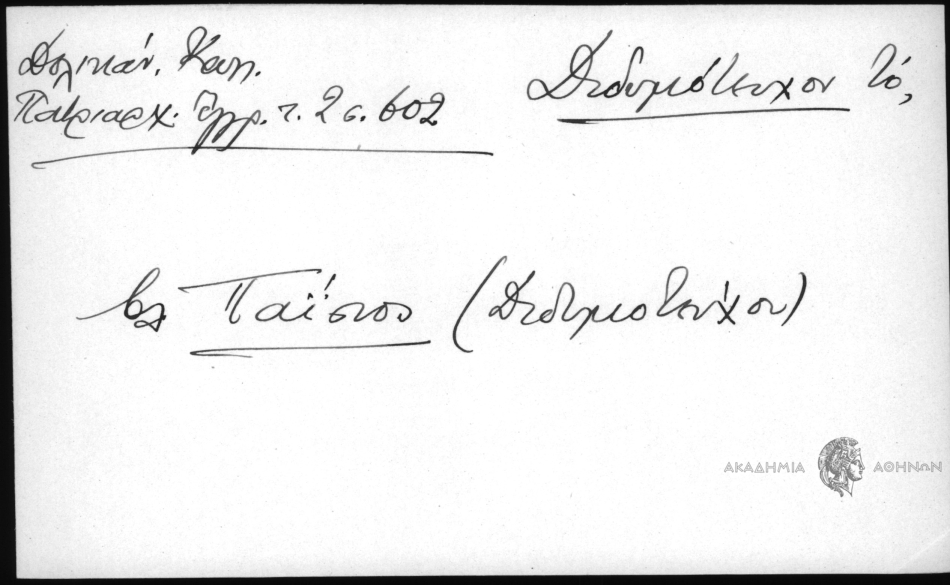 Δελικάν. Καλ.
Πατριαρχ. Ἔγγρ. τ. 2 σ. 602
Διδυμότειχον τό,
βλ Παΐσιον (Διδυμοτείχου)
ΑΚΑΔΗΜΙΑ ΑΘΗΝΩΝ